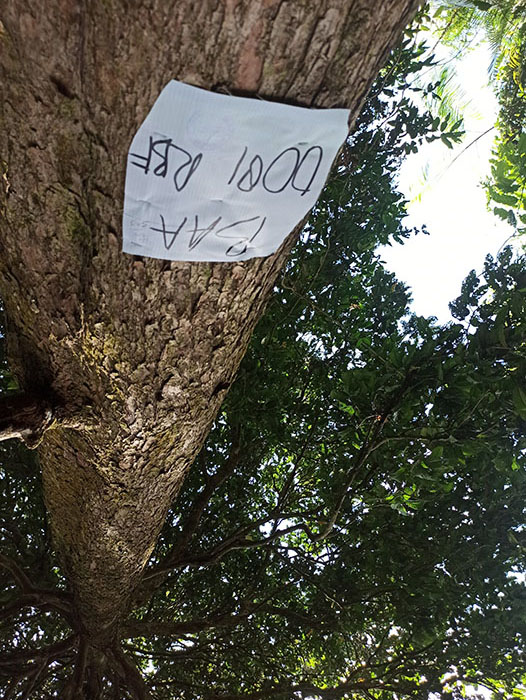 BAA
0081 RBF